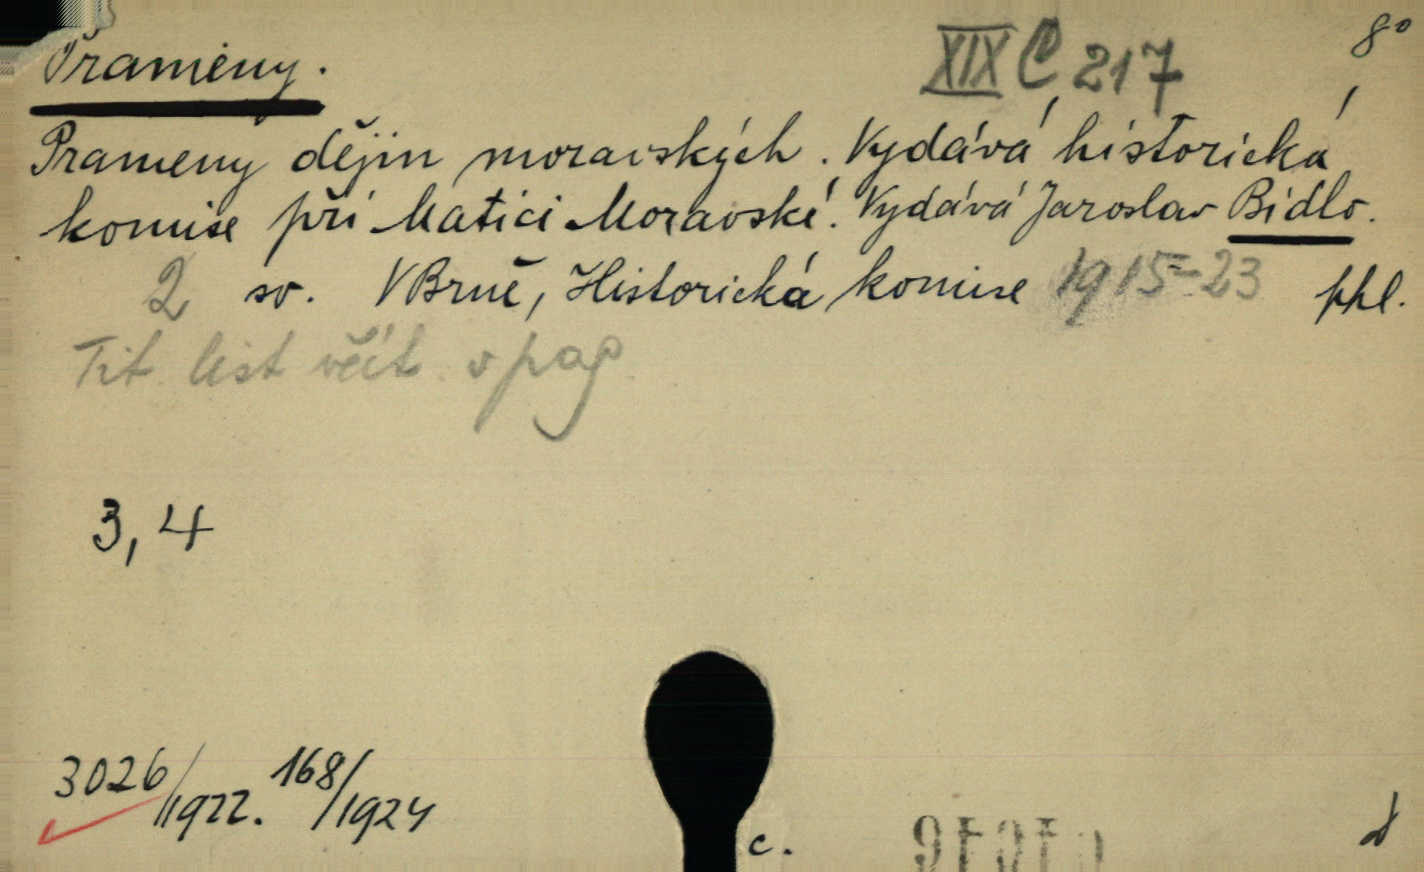 Prameny.
XIX C 217
8°
Prameny dějin moravských. Vydává historická
komise při Matici Moravské. Vydává Jaroslav Bidlo.
2 sv. V Brně, Historická komise 1915-23 ppl.
Tit. list včít. v pag.
3, 4
3026/1922. 168/1924
c.